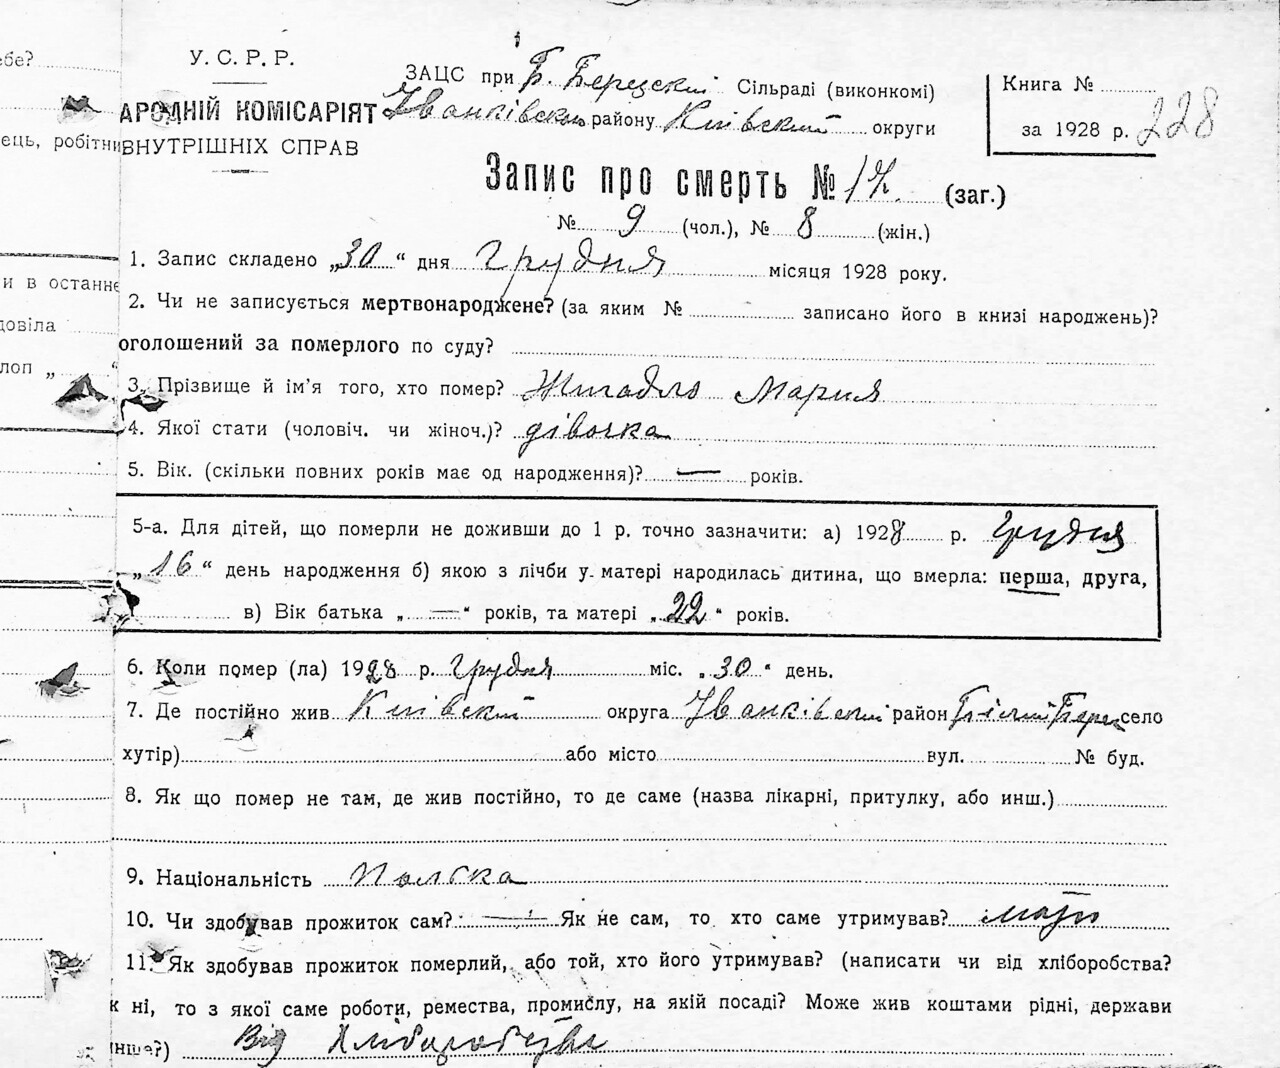 У. С. Р. Р.
ЗАЦС при Б. Берецскій Сільраді (виконкомі)
Книга №
АРОДНІЙ КОМІСАРІЯТ
Іванківском району Київский округи
за 1928 р. 228
ець, робітни
ВНУТРІШНІХ СПРАВ
Запис про смерть № 17 (заг.)
№ 9 (чол.), № 8 (жін.)
1. Запис складено „30" дня Грудня місяця 1928 року.
и в останнє
2. Чи не записується мертвонароджене? (за яким № записано його в книзі народжень)?
довіла
оголошений за померлого по суду?
лоп „ "
3. Прізвище й ім'я того, хто помер? Жигадло Мария
4. Якої стати (чоловіч. чи жіноч.)? дівочка
5. Вік. (скільки повних років має од народження)? — років.
5-а. Для дітей, що померли не доживши до 1 р. точно зазначити: а) 1928 р. Грудня
„16" день народження б) якою з лічби у матері народилась дитина, що вмерла: перша, друга,
в) Вік батька „ — " років, та матері „22" років.
6. Коли помер (ла) 1928 р. Грудня міс. „30" день.
7. Де постійно жив Київский округа Іванківский район Білий Берег село
хутір) або місто вул. № буд.
8. Як що помер не там, де жив постійно, то де саме (назва лікарні, притулку, або инш.)
9. Національність Полска
10. Чи здобував прожиток сам? — Як не сам, то хто саме утримував? мати
11. Як здобував прожиток померлий, або той, хто його утримував? (написати чи від хліборобства?
к ні, то з якої саме роботи, ремества, промислу, на якій посаді? Може жив коштами рідні, держави
інше?) Від Хліборобства